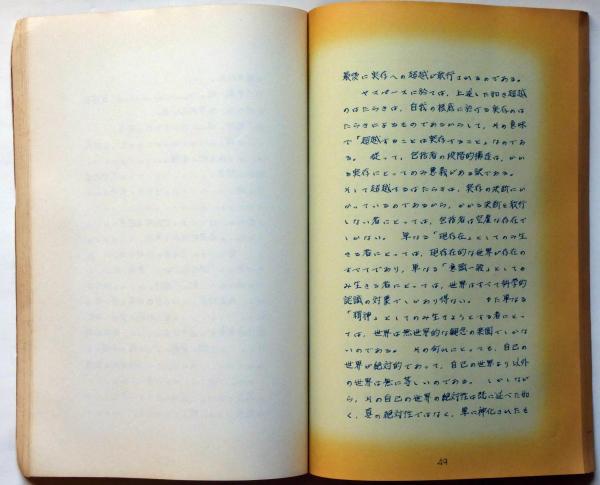 最後に実存への超越が敢行されるのである。
ヤスパースに於ては、上述した如き超越
のはたらきは、自我の根底に於ける実存のは
たらきによるものであるからして、其の意味
で「超越することは実存すること」なのであ
る。 従って、包括者の段階的構造は、かか
る実存にとってのみ意義がある訳である。
其して超越するはたらきは、実存の決断にか
かっているのであるから、かかる決断を敢行
しない者にとっては、包括者は空虚な存在で
しかない。 単なる「現存在」としてのみ生
きる者にとっては、現存在的な世界が存在の
すべてであり、単なる「意識一般」としての
み生きる者にとっては、世界はすべて科学的
認識の対象でしかあり得ない。 また単なる
「精神」としてのみ生きようとする者にとっ
ては、世界は無世界的な観念の楽園でしかな
いのである。 其の何れにとっても、自己の
世界が絶対的であって、自己の世界より以外
の世界は無に等しいのである。 しかしなが
ら、其の自己の世界の絶対性は既に述べた如
く、真の絶対性ではなく、単に神化されたも
49